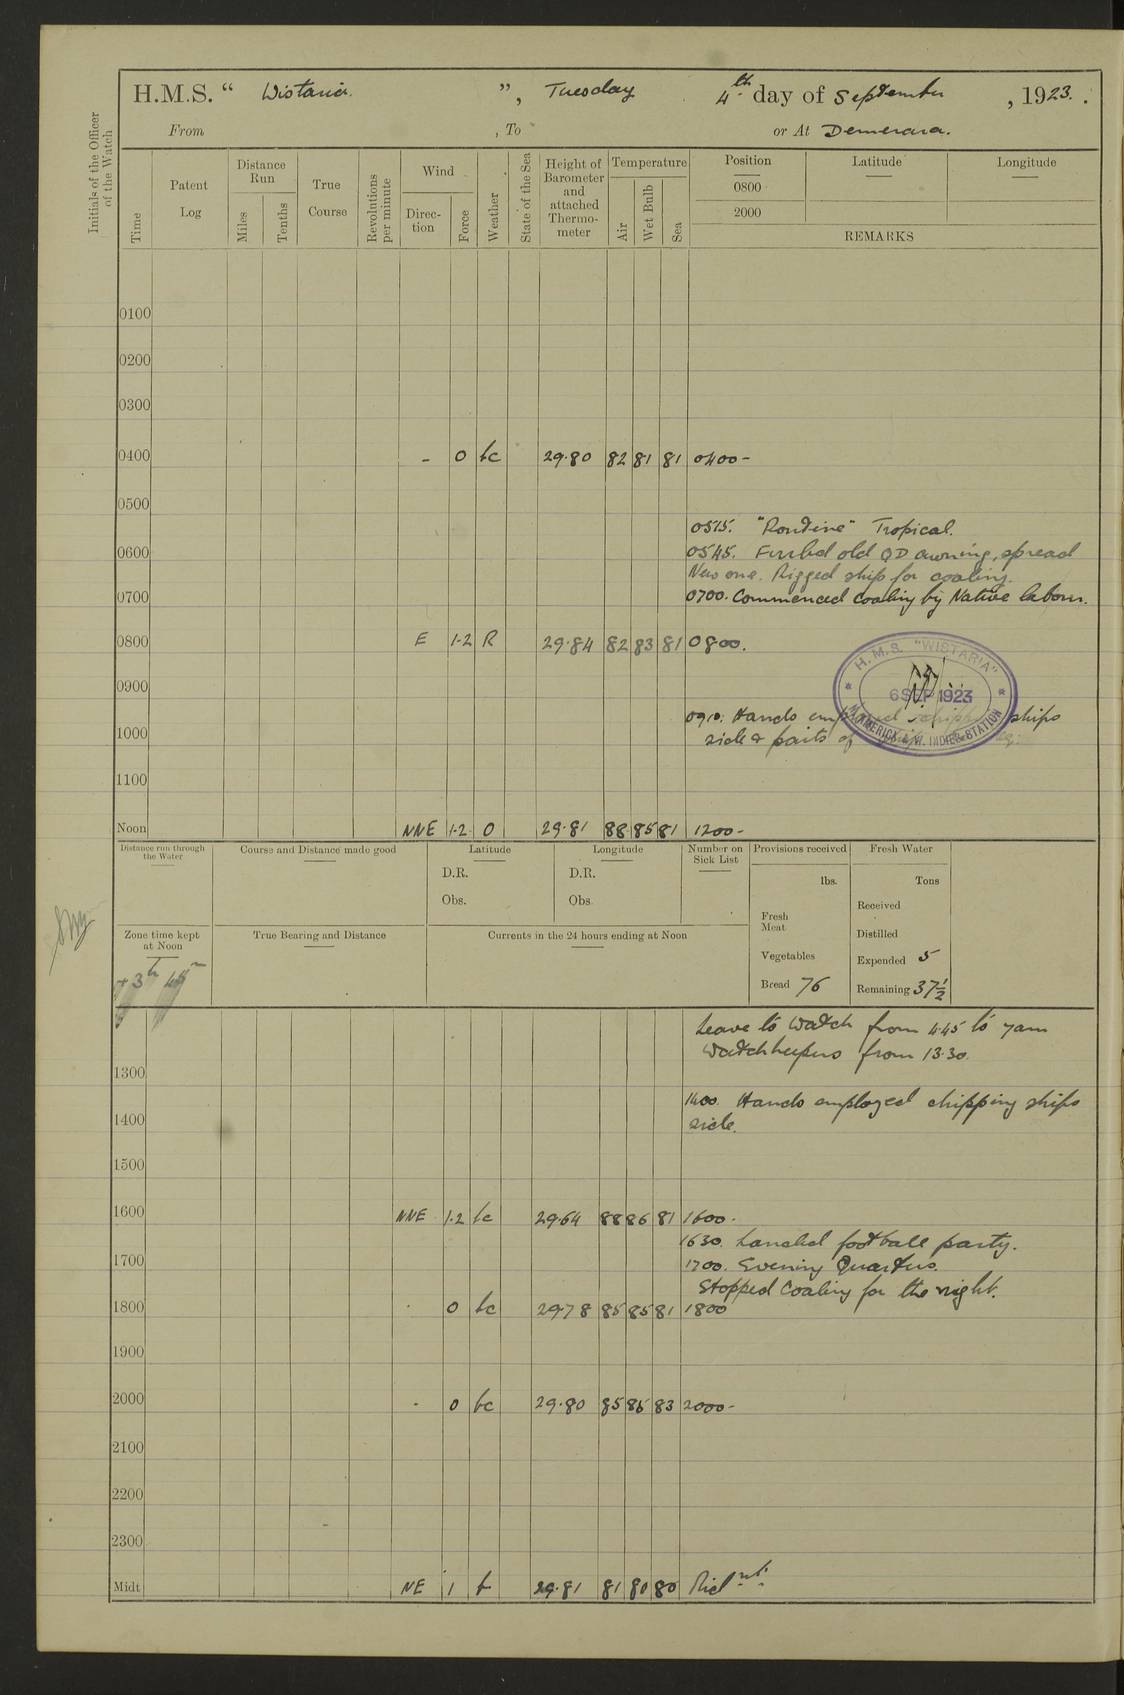 H.M.S. " Wistaria. ", Tuesday 4th day of September, 1923.
From , To or At Demerara.
Initials of the Officer of the Watch
Time
Patent Log
Distance Run
Miles
Tenths
True Course
Revolutions per minute
Wind
Direc-tion
Force
Weather
State of the Sea
Height of Barometer and attached Thermo-meter
Temperature
Air
Wet Bulb
Sea
Position
0800
2000
Latitude
Longitude
REMARKS
0100
0200
0300
0400 - 0 bc 29.80 82 81 81 0400-
0500
0515. "Routine" Tropical.
0600 0545. Furled old QD awning, spread
New one. Rigged ship for coaling.
0700 0700. Commenced coaling by Native labour.
0800 E 1-2 R 29.84 82 83 81 0800.
H.M.S. "WISTARIA"
6 SEP 1923
N. AMERICA & W. INDIES STATION
0900
0910. Hands employed chipping ships
1000 side & parts of
1100
Noon NNE 1-2 O 29.81 88 85 81 1200-
Distance run through the Water
Course and Distance made good
Latitude
D.R.
Obs.
Longitude
D.R.
Obs.
Number on Sick List
Provisions received
lbs.
Fresh Meat
Vegetables
Bread 76
Fresh Water
Tons
Received
Distilled
Expended 5
Remaining 37½
Zone time kept at Noon
+3h 45m
True Bearing and Distance
Currents in the 24 hours ending at Noon
Leave to watch from 4.45 to 7am
Watchkeepers from 13.30.
1300
1400. Hands employed chipping ships
1400 side.
1500
1600 NNE 1.2 bc 29.64 88 86 81 1600.
1630. Landed football party.
1700 1700. Evening Quarters.
Stopped Coaling for the night.
1800 0 bc 29.78 85 85 81 1800
1900
2000 - 0 bc 29.80 85 85 83 2000-
2100
2200
2300
Midt NE 1 b 29.81 81 80 80